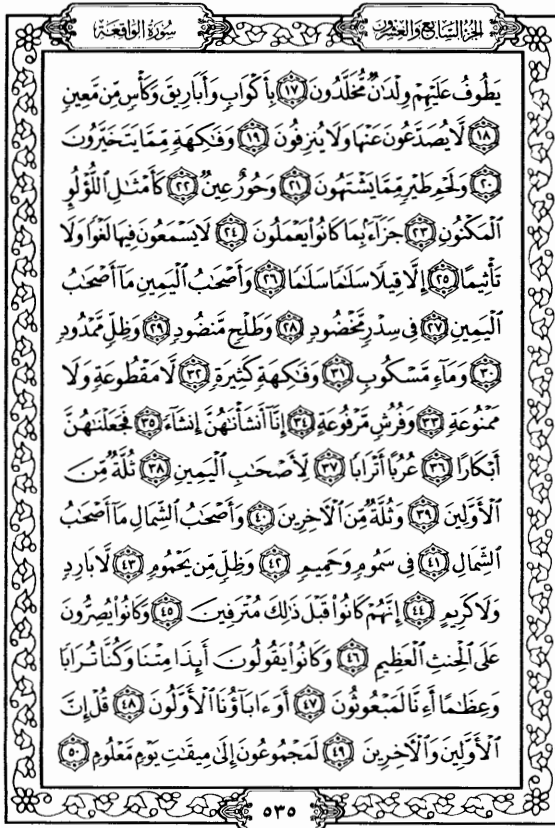 الجزء السابع والعشرون
سورة الواقعة
يَطُوفُ عَلَيْهِمْ وِلْدَٰنٌ مُّخَلَّدُونَ ١٧ بِأَكْوَابٍ وَأَبَارِيقَ وَكَأْسٍ مِّن مَّعِينٍ
١٨ لَّا يُصَدَّعُونَ عَنْهَا وَلَا يُنزِفُونَ ١٩ وَفَٰكِهَةٍ مِّمَّا يَتَخَيَّرُونَ
٢٠ وَلَحْمِ طَيْرٍ مِّمَّا يَشْتَهُونَ ٢١ وَحُورٌ عِينٌ ٢٢ كَأَمْثَٰلِ ٱللُّؤْلُوِٕ
ٱلْمَكْنُونِ ٢٣ جَزَآءًۢ بِمَا كَانُوا۟ يَعْمَلُونَ ٢٤ لَا يَسْمَعُونَ فِيهَا لَغْوًا وَلَا
تَأْثِيمًا ٢٥ إِلَّا قِيلًا سَلَٰمًا سَلَٰمًا ٢٦ وَأَصْحَٰبُ ٱلْيَمِينِ مَآ أَصْحَٰبُ
ٱلْيَمِينِ ٢٧ فِى سِدْرٍ مَّخْضُودٍ ٢٨ وَطَلْحٍ مَّنضُودٍ ٢٩ وَظِلٍّ مَّمْدُودٍ
٣٠ وَمَآءٍ مَّسْكُوبٍ ٣١ وَفَٰكِهَةٍ كَثِيرَةٍ ٣٢ لَّا مَقْطُوعَةٍ وَلَا
مَمْنُوعَةٍ ٣٣ وَفُرُشٍ مَّرْفُوعَةٍ ٣٤ إِنَّآ أَنشَأْنَٰهُنَّ إِنشَآءً ٣٥ فَجَعَلْنَٰهُنَّ
أَبْكَارًا ٣٦ عُرُبًا أَتْرَابًا ٣٧ لِّأَصْحَٰبِ ٱلْيَمِينِ ٣٨ ثُلَّةٌ مِّنَ
ٱلْأَوَّلِينَ ٣٩ وَثُلَّةٌ مِّنَ ٱلْأَخِرِينَ ٤٠ وَأَصْحَٰبُ ٱلشِّمَالِ مَآ أَصْحَٰبُ
ٱلشِّمَالِ ٤١ فِى سَمُومٍ وَحَمِيمٍ ٤٢ وَظِلٍّ مِّن يَحْمُومٍ ٤٣ لَّا بَارِدٍ
وَلَا كَرِيمٍ ٤٤ إِنَّهُمْ كَانُوا۟ قَبْلَ ذَٰلِكَ مُتْرَفِينَ ٤٥ وَكَانُوا۟ يُصِرُّونَ
عَلَى ٱلْحِنثِ ٱلْعَظِيمِ ٤٦ وَكَانُوا۟ يَقُولُونَ أَئِذَا مِتْنَا وَكُنَّا تُرَابًا
وَعِظَٰمًا أَءِنَّا لَمَبْعُوثُونَ ٤٧ أَوَءَابَآؤُنَا ٱلْأَوَّلُونَ ٤٨ قُلْ إِنَّ
ٱلْأَوَّلِينَ وَٱلْأَخِرِينَ ٤٩ لَمَجْمُوعُونَ إِلَىٰ مِيقَٰتِ يَوْمٍ مَّعْلُومٍ ٥٠
٥٣٥